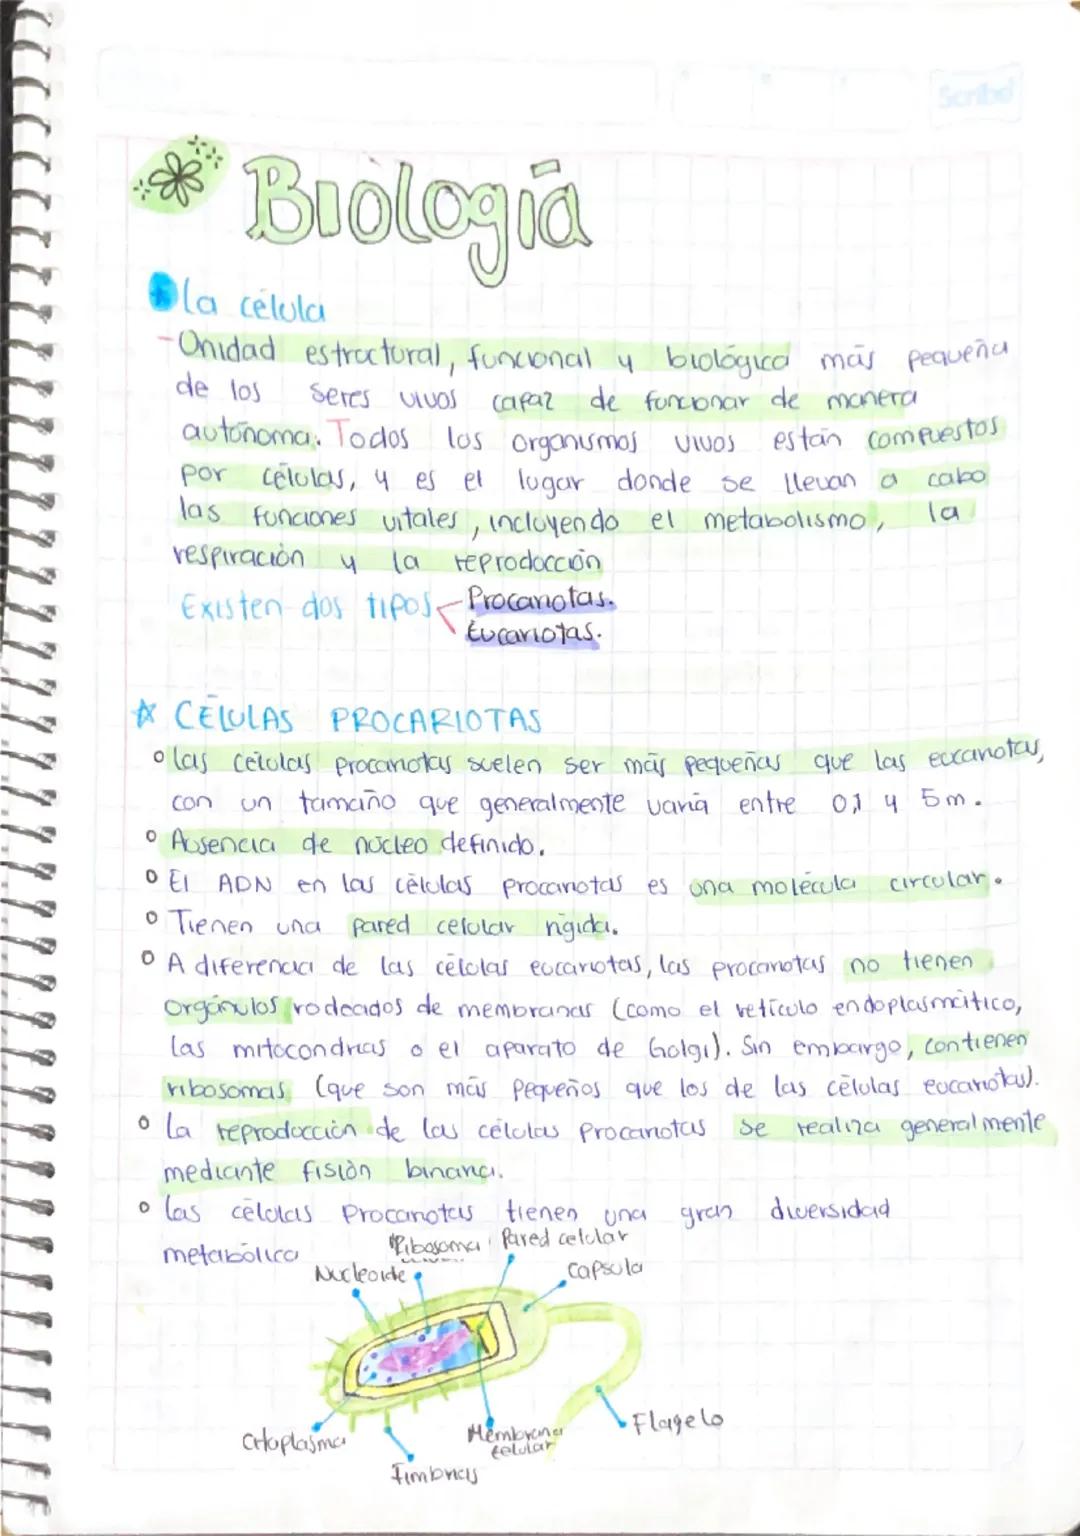 Scribd
Biología
La célula
- Unidad estructural, funcional y biológica más pequeña
de los seres vivos capaz de funcionar de manera
autónoma. Todos los organismos vivos están compuestos
por células, y es el lugar donde se llevan a cabo
las funciones vitales, incluyendo el metabolismo, la
respiración y la reproducción
Existen dos tipos Procariotas.
Eucariotas.
CÉLULAS PROCARIOTAS
Las células procariotas suelen ser más pequeñas que las eucariotas,
con un tamaño que generalmente varía entre 0,1 y 5m.
Ausencia de núcleo definido.
El ADN en las células procariotas es una molécula circular.
Tienen una pared celular rígida.
A diferencia de las células eucariotas, las procariotas no tienen
orgánulos rodeados de membranas (como el retículo endoplasmático,
las mitocondrias o el aparato de Golgi). Sin embargo, contienen
ribosomas (que son más pequeños que los de las células eucariotas).
La reproducción de las células procariotas se realiza generalmente
mediante fisión binaria.
Las células procariotas tienen una gran diversidad
metabólica
Ribosoma Pared celular
Nucleoide Capsula
Citoplasma Membrana Flagelo
celular
Fimbrias